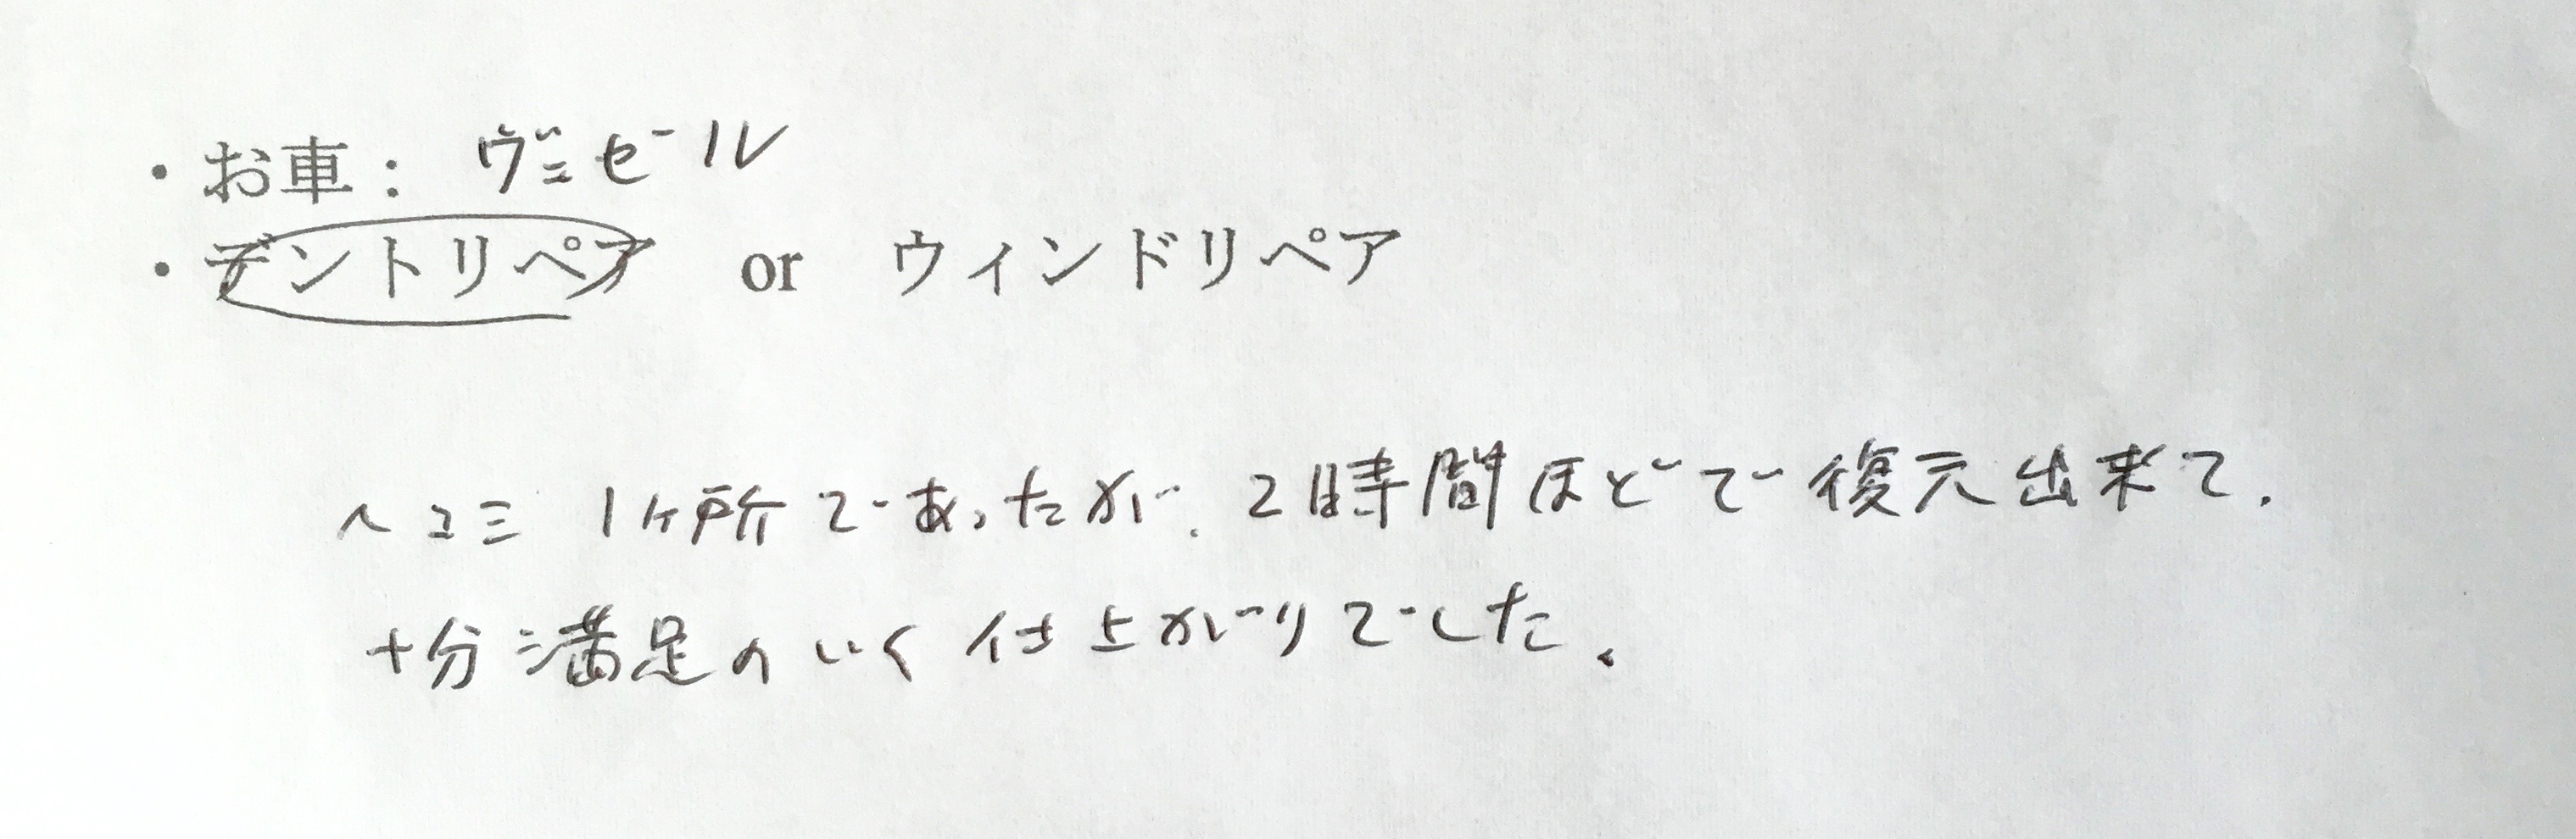 ・お車： ヴェゼール
・デントリペア or ウィンドリペア
ヘコミ 1ヶ所であったが、2時間ほどで復元出来て、
十分満足のいく仕上がりでした。